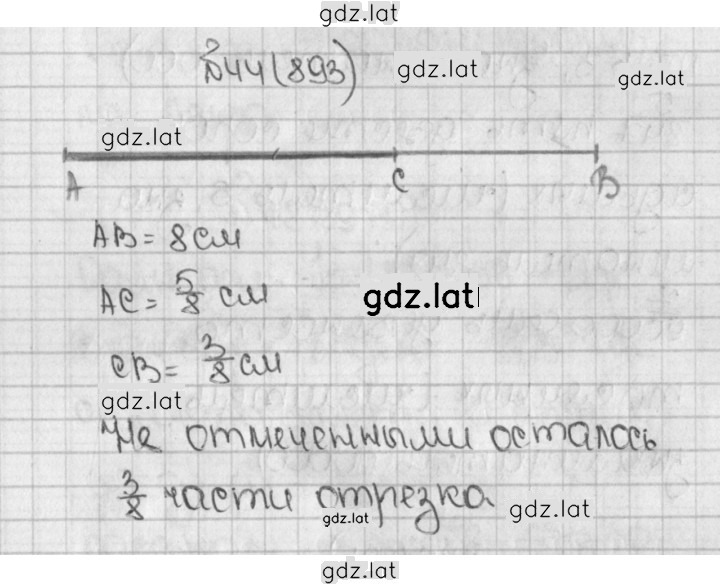 gdz.lat
№44(893)
gdz.lat
gdz.lat
gdz.lat
A C B
AB = 8 см
AC = 5/8 см
gdz.lat
CB = 3/8 см
gdz.lat
Не отмеченными осталось
3/8 части отрезка
gdz.lat
gdz.lat
gdz.lat